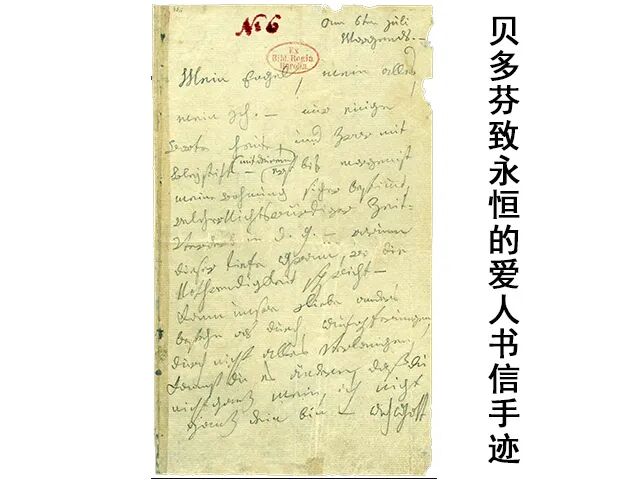 № 6
am 6ten Juli
Morgends. —
Ex
Bibl. Regia
Berolin.
Mein Engel, mein alles,
mein Ich. — nur einige
Worte heute, und zwar mit
Bleystift — (mit deinem) erst bis morgen ist
meine wohnung sicher bestimmt,
welcher Nichtswürdiger Zeit-
verderb in d. g. — warum
dieser tiefe Gram, wo die
Nothwendigkeit spricht —
Kann unsre Liebe anders
bestehn als durch Aufopferungen,
durch nicht alles verlangen,
kannst du es ändern, daß du
nicht ganz mein, ich nicht
ganz dein bin — Ach Gott
贝多芬致永恒的爱人书信手迹